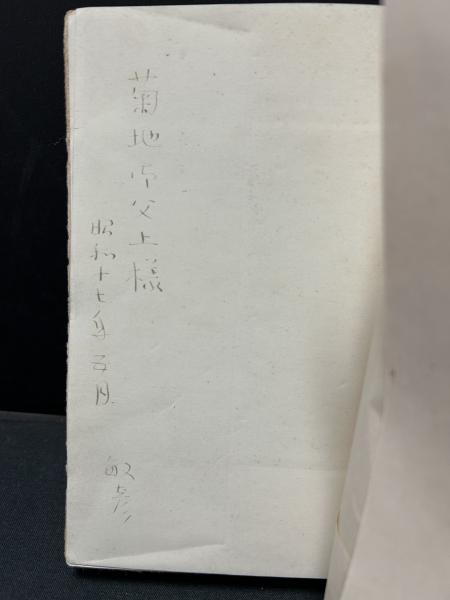 菊地御父上様
昭和十七年五月
敏彦